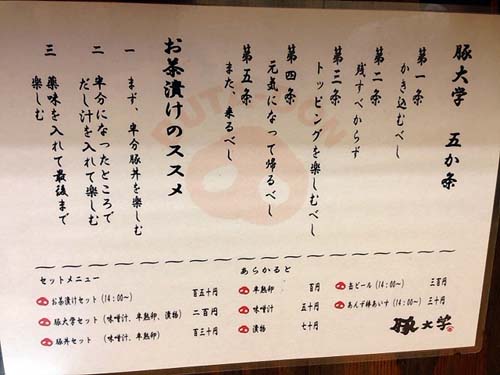 豚大学 五か条
第一条
かき込むべし
第二条
残すべからず
第三条
トッピングを楽しむべし
第四条
元気になって帰るべし
第五条
また、来るべし
お茶漬けのススメ
一 まず、半分豚丼を楽しむ
二 半分になったところで
だし汁を入れて楽しむ
三 薬味を入れて最後まで
楽しむ
BUTADON
セットメニュー
お茶漬けセット(14:00〜) 百五十円
豚大学セット(味噌汁、半熟卵、漬物) 二百円
豚丼セット (味噌汁、半熟卵) 百三十円
あらかると
半熟卵 百円
味噌汁 五十円
漬物 七十円
缶ビール(14:00〜) 三百円
あんず棒あいす(14:00〜) 三十円
豚大学